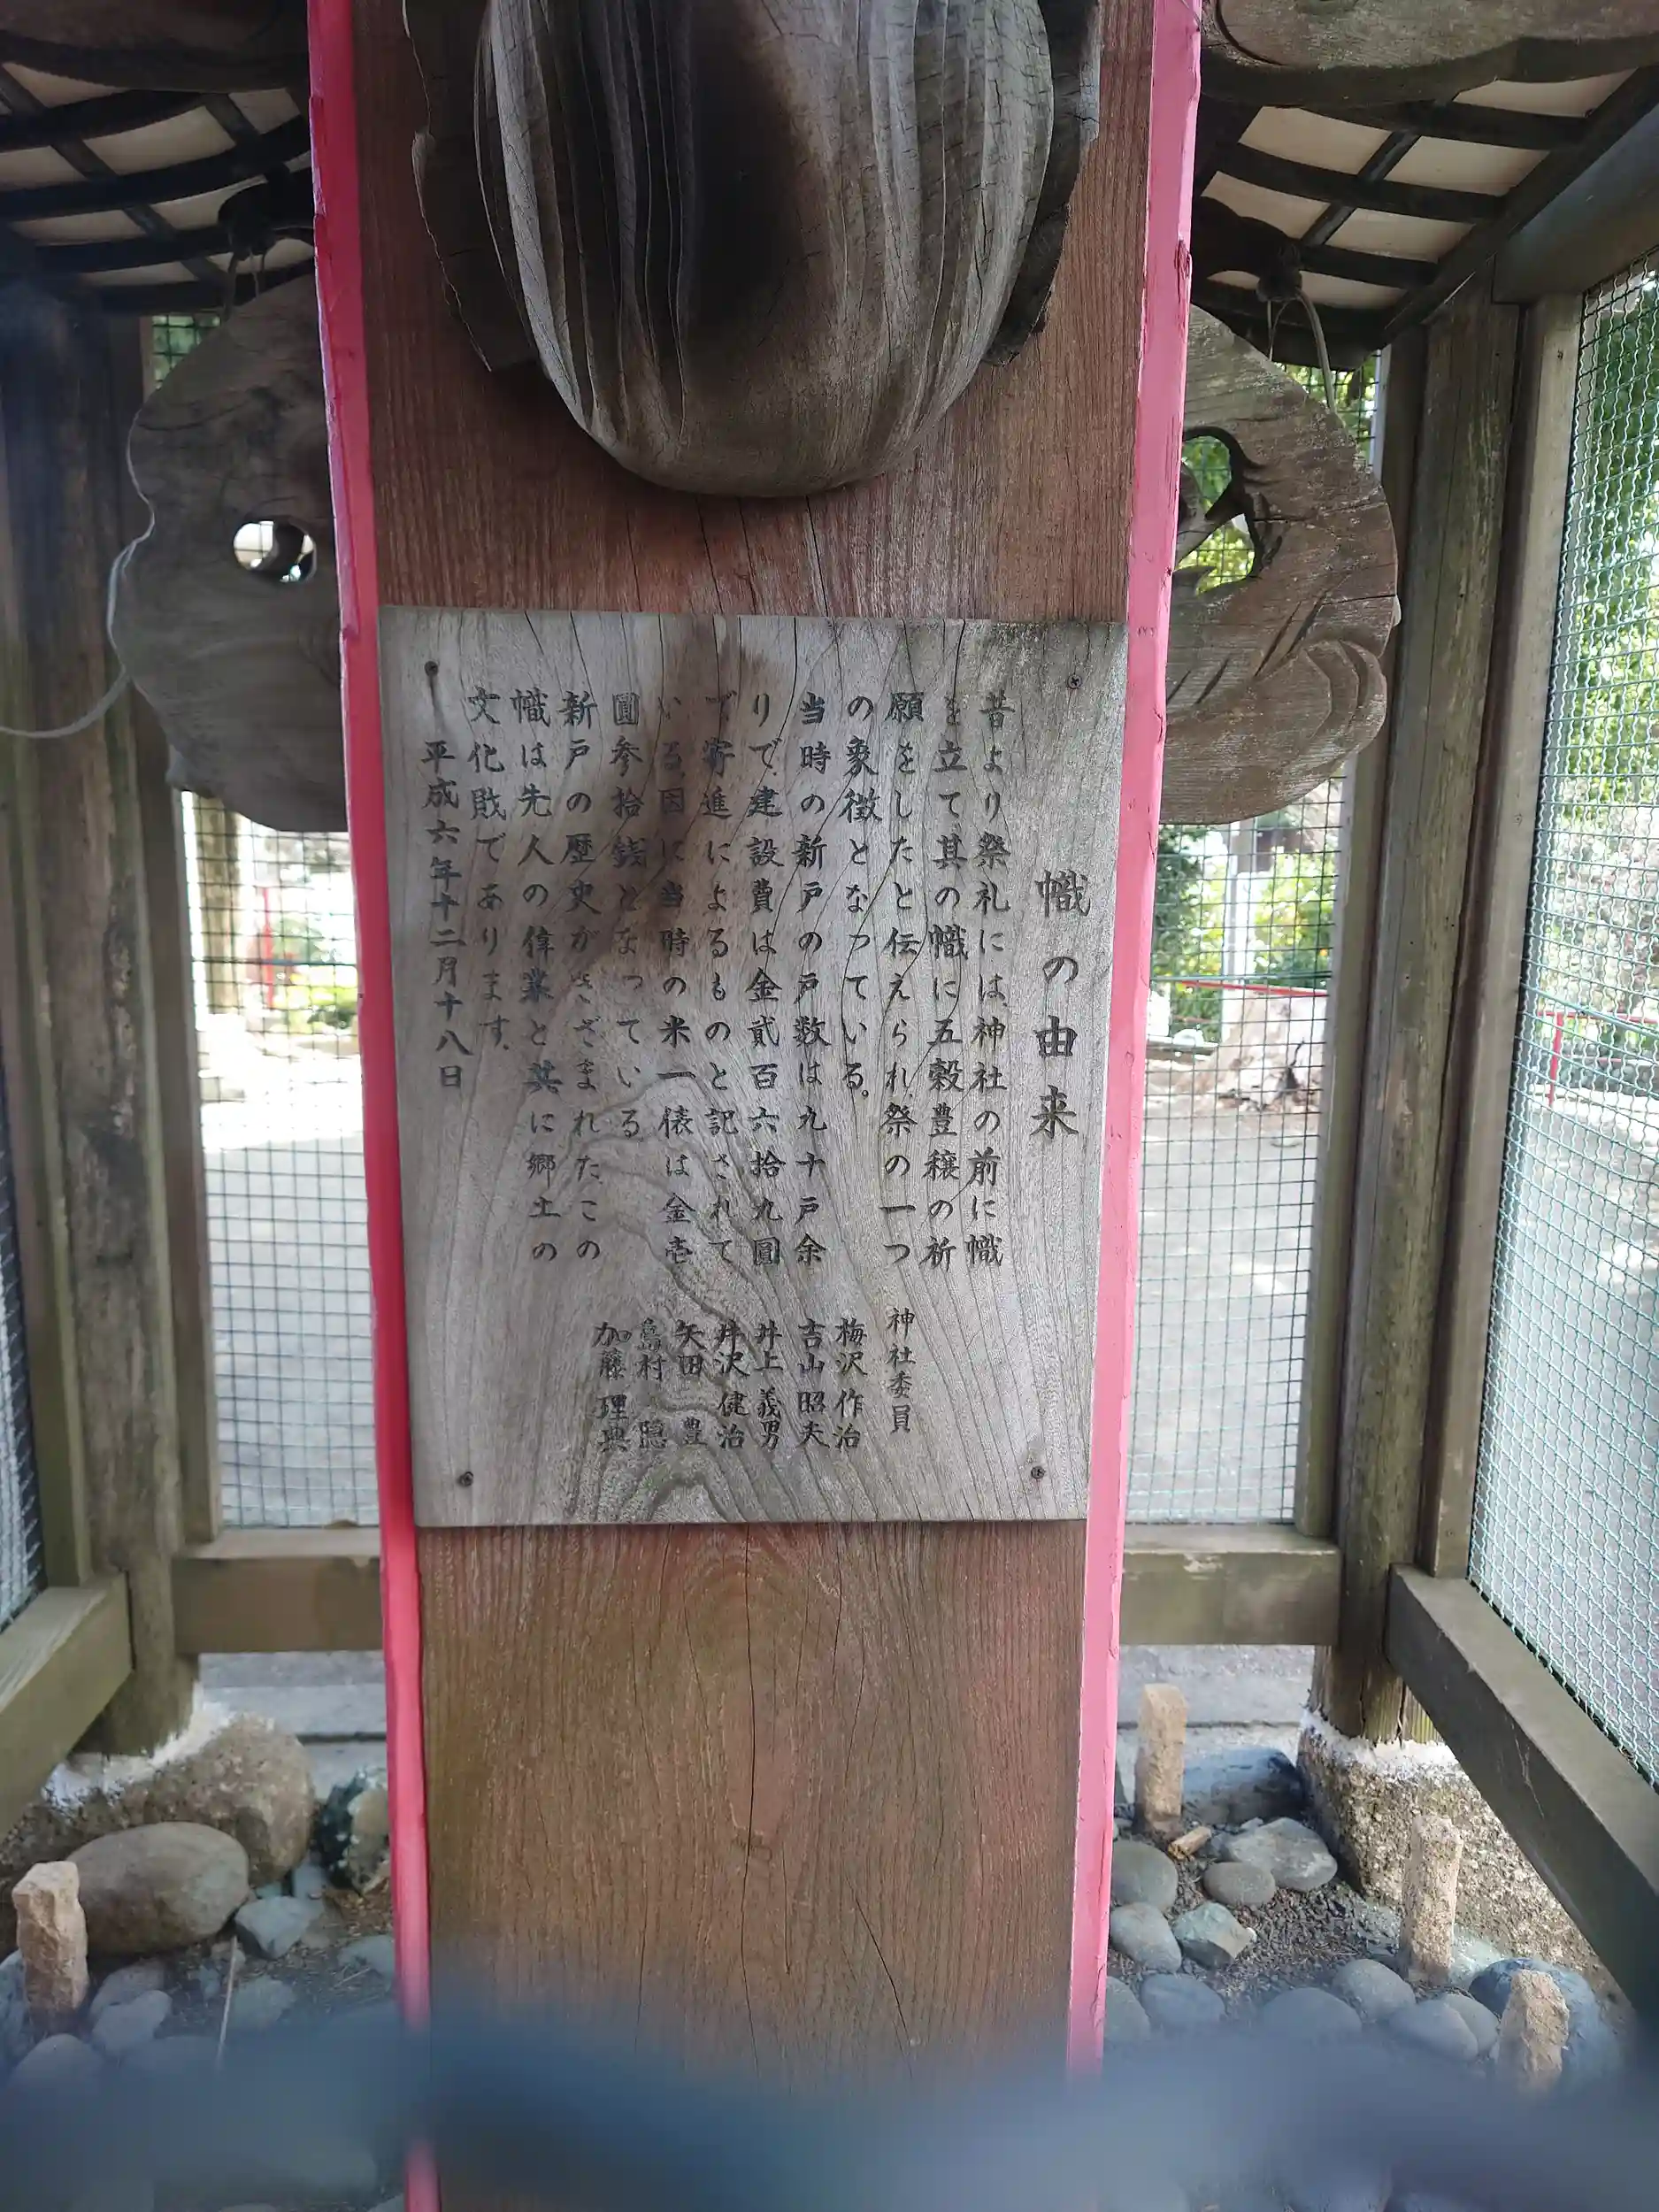 幟の由来
昔より祭礼には、神社の前に幟
を立て、其の幟に五穀豊穣の祈
願をしたと伝えられ、祭の一つ
の象徴となっている。
当時の新戸の戸数は九十戸余
りで、建設費は金貳百六拾九圓
で寄進によるものと記されて
いる、因に当時の米一俵は金壱
圓参拾銭となっている。
新戸の歴史がきざまれた、この
幟は先人の偉業と共に郷土の
文化財であります。
平成六年十二月十八日
神社委員
梅沢作治
吉山昭夫
井上義男
井沢健治
矢田豊
島村
加藤理典